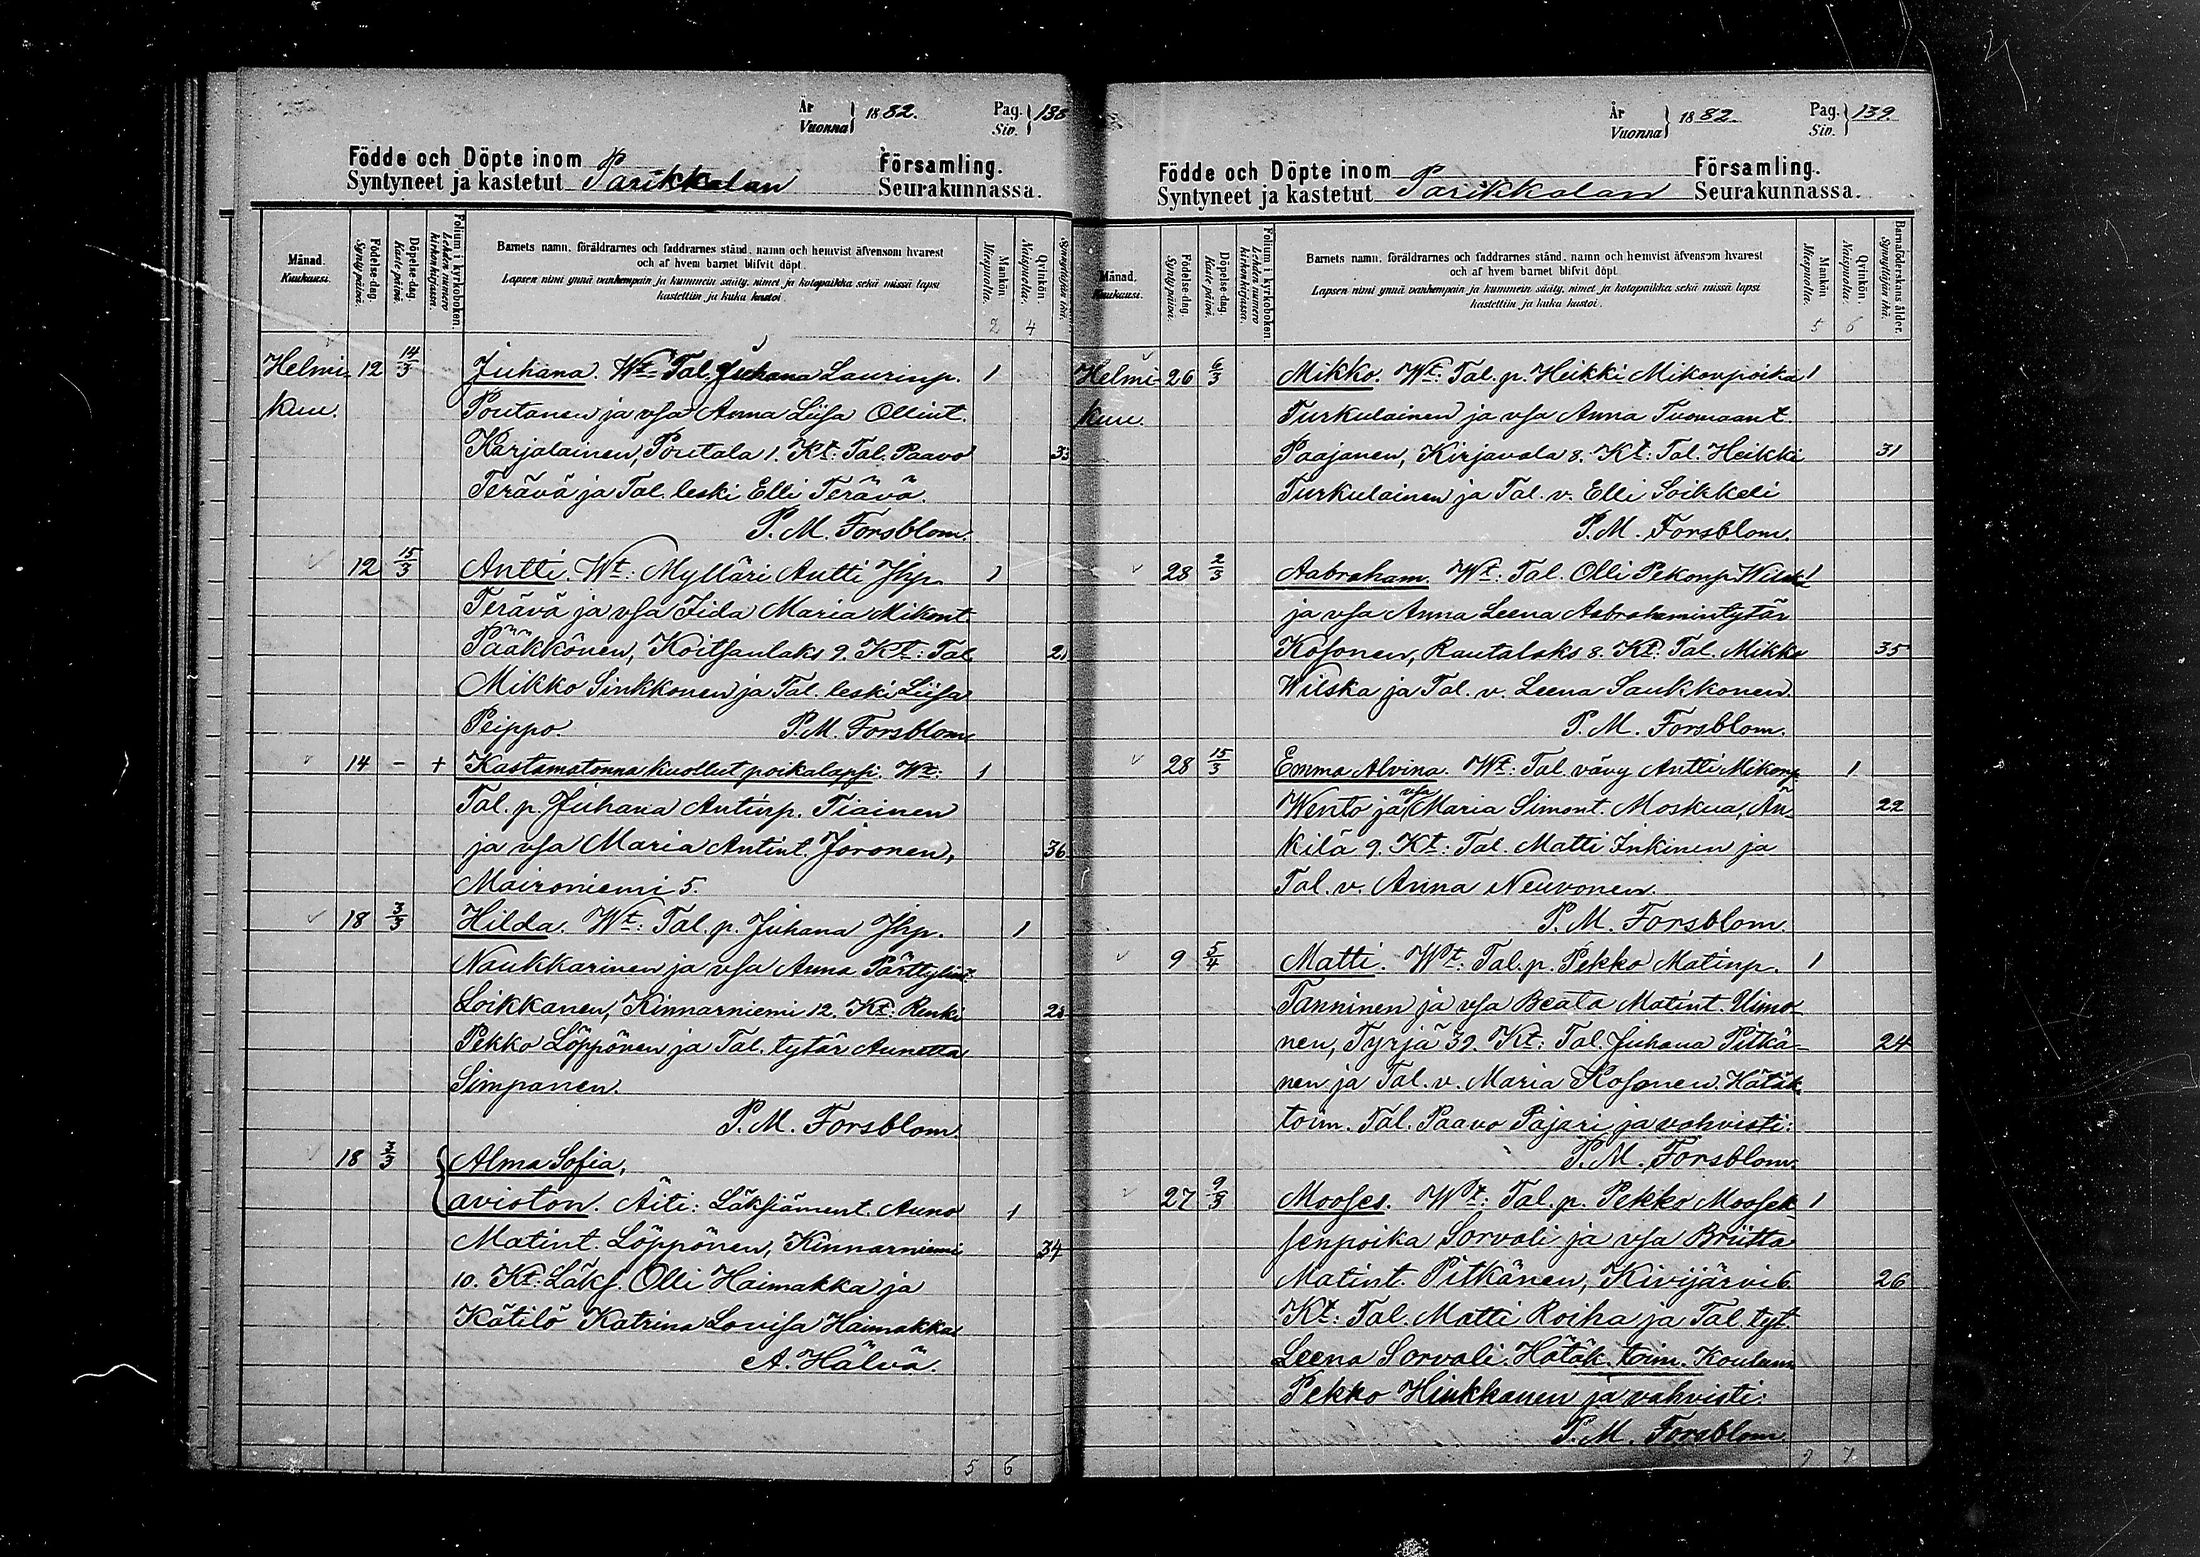 År
Vuonna } 1882.
Pag.
Siv. } 138
Födde och Döpte inom
Syntyneet ja kastetut Parikkalan
Församling.
Seurakunnassa.
Månad.
Kuukausi.
Födelse-dag.
Synty päivä.
Döpelse-dag.
Kaste päivä.
Folium i kyrkoboken.
Lehden numero kirkonkirjassa.
Barnets namn, föräldrarnes och faddrarnes stånd, namn och hemvist äfvensom hvarest
och af hvem barnet blifvit döpt.
Lapsen nimi ynnä vanhempain ja kummein sääty, nimet ja kotopaikka sekä missä lapsi
kastettiin ja kuka kastoi.
Mankön
Miespuolia.
Qvinkön
Naispuolia.
Synnyttäjän ikä.
2 4
Helmi- 12 14/3 Juhana. Wt: Tal. Juhana Laurinp. 1
kuu. Poutanen ja vsa Anna Liisa Ollint.
Karjalainen, Poutala 1. Kt: Tal. Paavo 33
Terävä ja Tal. leski Elli Terävä.
P. M. Forsblom.
12 15/3 Antti. Wt: Mylläri Antti Jhp. 1
Terävä ja vsa Iida Maria Mikont.
Pääkkönen, Koitsanlaks 9. Kt: Tal. 21
Mikko Sinkkonen ja Tal. leski Liisa
Peippo. P. M. Forsblom
14 - + Kastamatonna kuollut poikalapsi. Wt: 1
Tal. p. Juhana Antinp. Tiainen
ja vsa Maria Antint. Joronen, 36
Maironiemi 5.
18 3/3 Hilda. Wt: Tal. p. Juhana Jhp. 1
Naukkarinen ja vsa Anna Pärttylint.
Loikkanen, Kinnarniemi 12. Kt: Renki 28
Pekko Löppönen ja Tal. tytär Annetta
Simpanen.
P. M. Forsblom.
18 3/3 Alma Sofia,
avioton. Äiti: Läksiäment. Anna 1
Matint. Löppönen, Kinnarniemi 34
10. Kt: Läks. Olli Haimakka ja
Kätilö Katrina Lovisa Haimakka
A. Hälvä.
5 6
År
Vuonna } 1882.
Pag.
Siv. } 139.
Födde och Döpte inom
Syntyneet ja kastetut Parikkalan
Församling.
Seurakunnassa.
Månad.
Kuukausi.
Födelse-dag.
Synty päivä.
Döpelse-dag.
Kaste päivä.
Folium i kyrkoboken.
Lehden numero kirkonkirjassa.
Barnets namn, föräldrarnes och faddrarnes stånd, namn och hemvist äfvensom hvarest
och af hvem barnet blifvit döpt.
Lapsen nimi ynnä vanhempain ja kummein sääty, nimet ja kotopaikka sekä missä lapsi
kastettiin ja kuka kastoi.
Mankön
Miespuolia.
Qvinkön.
Naispuolia.
Barnaföderskans ålder.
Synnyttäjän ikä.
5 6
Helmi- 26 6/3 Mikko. Wt: Tal. p. Heikki Mikonpoika 1
kuu. Turkulainen ja vsa Anna Tuomaant.
Paajanen, Kirjavala 8. Kt: Tal. Heikki 31
Turkulainen ja Tal. v. Elli Soikkeli
P. M. Forsblom.
28 2/3 Aabraham. Wt: Tal. Olli Pekonp. Wilska 1
ja vsa Anna Leena Aabrahamintytär
Kosonen, Rautalaks 8. Kt: Tal. Mikko 35
Wilska ja Tal. v. Leena Saukkonen.
P. M. Forsblom.
28 15/3 Emma Alvina. Wt: Tal. vävy Antti Mikonp. 1
Wento ja vsa Maria Simont. Moskua, An- 22
kilä 9. Kt: Tal. Matti Inkinen ja
Tal. v. Anna Neuvonen.
P. M. Forsblom.
9 5/4 Matti. Wt: Tal. p. Pekko Matinp. 1
Tanninen ja vsa Beata Matint. Uimo-
nen, Tyrjä 39. Kt: Tal. Juhana Pitkä- 24
nen ja Tal. v. Maria Kosonen. Hätäk.
toim. Tal. Paavo Pajari ja vahvisti:
P. M. Forsblom.
27 9/3 Mooses. Wt: Tal. p. Pekko Moosek- 1
senpoika Sorvali ja vsa Briitta
Matint. Pitkänen, Kivijärvi 6. 26
Kt: Tal. Matti Roiha ja Tal. tyt.
Leena Sorvali. Hätäk. toim. Koulum.
Pekko Hinkkanen ja vahvisti:
P. M. Forsblom.
9 7